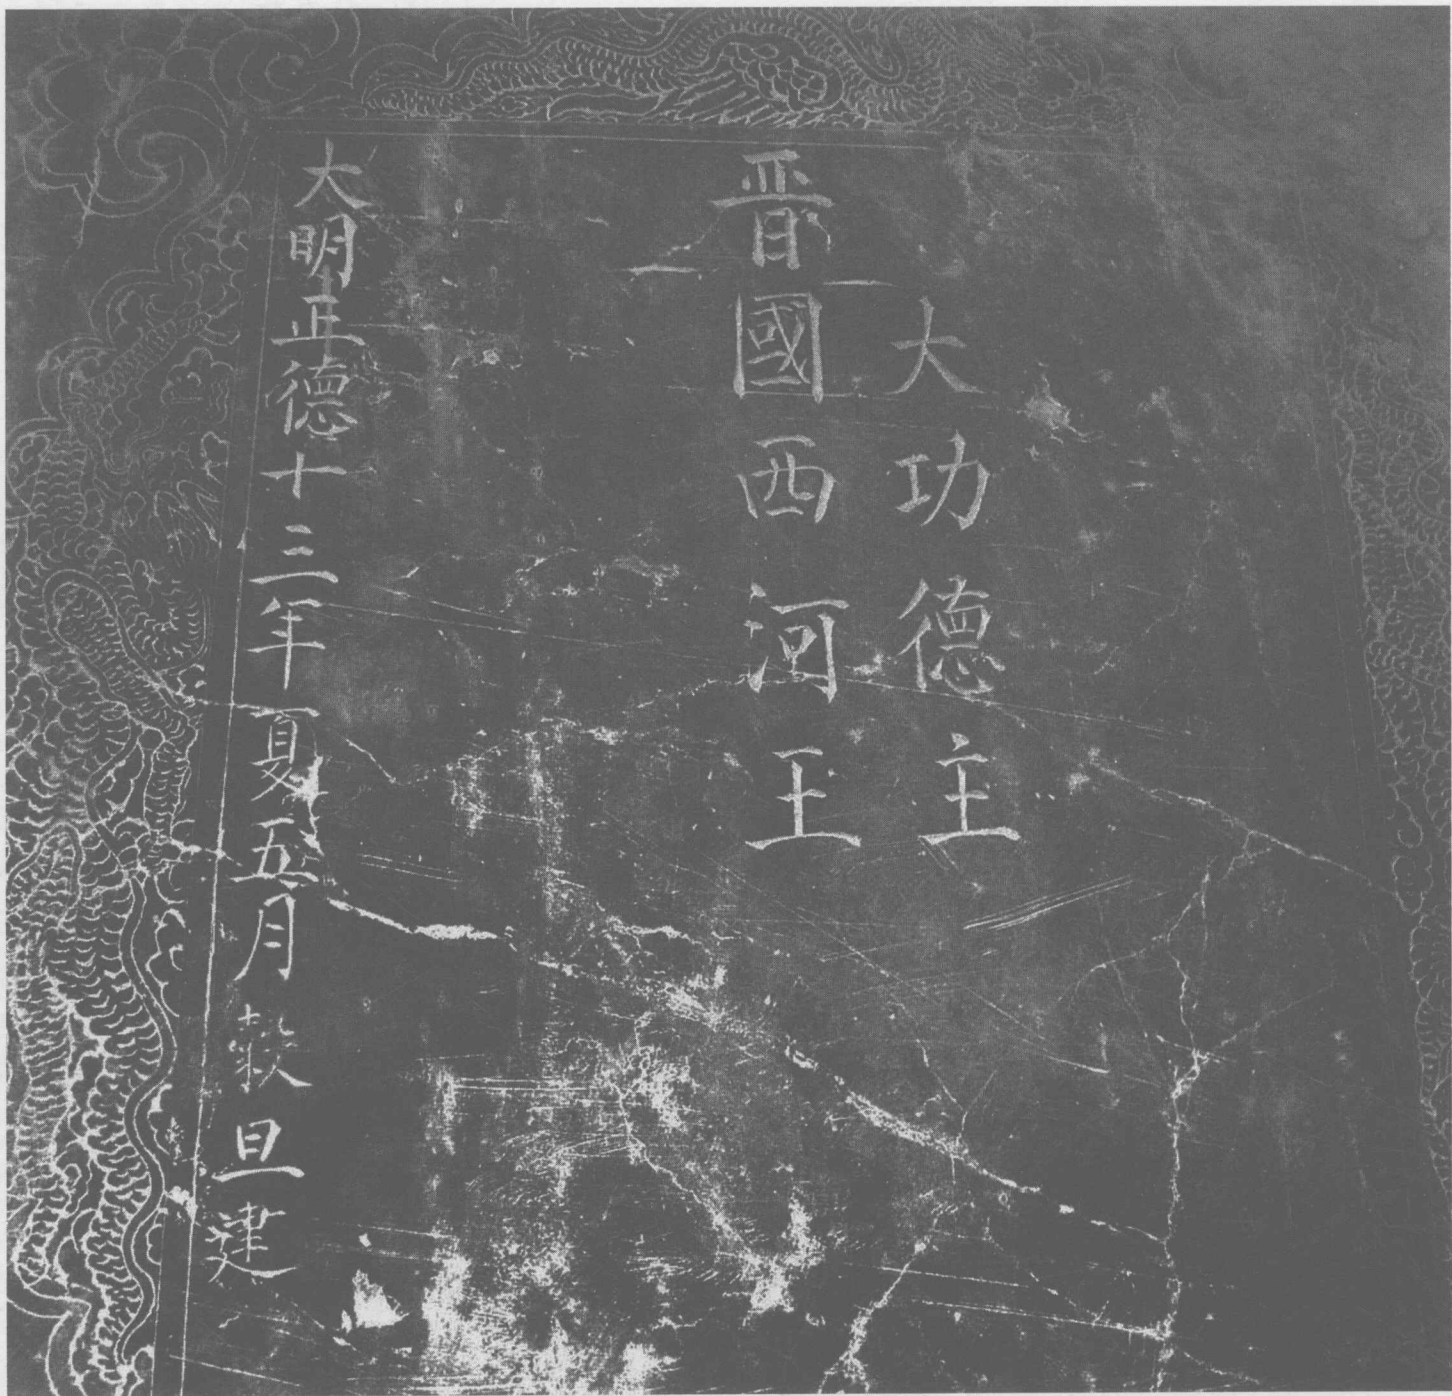 大功德主
晋國西河王
大明正德十三年夏五月穀旦建